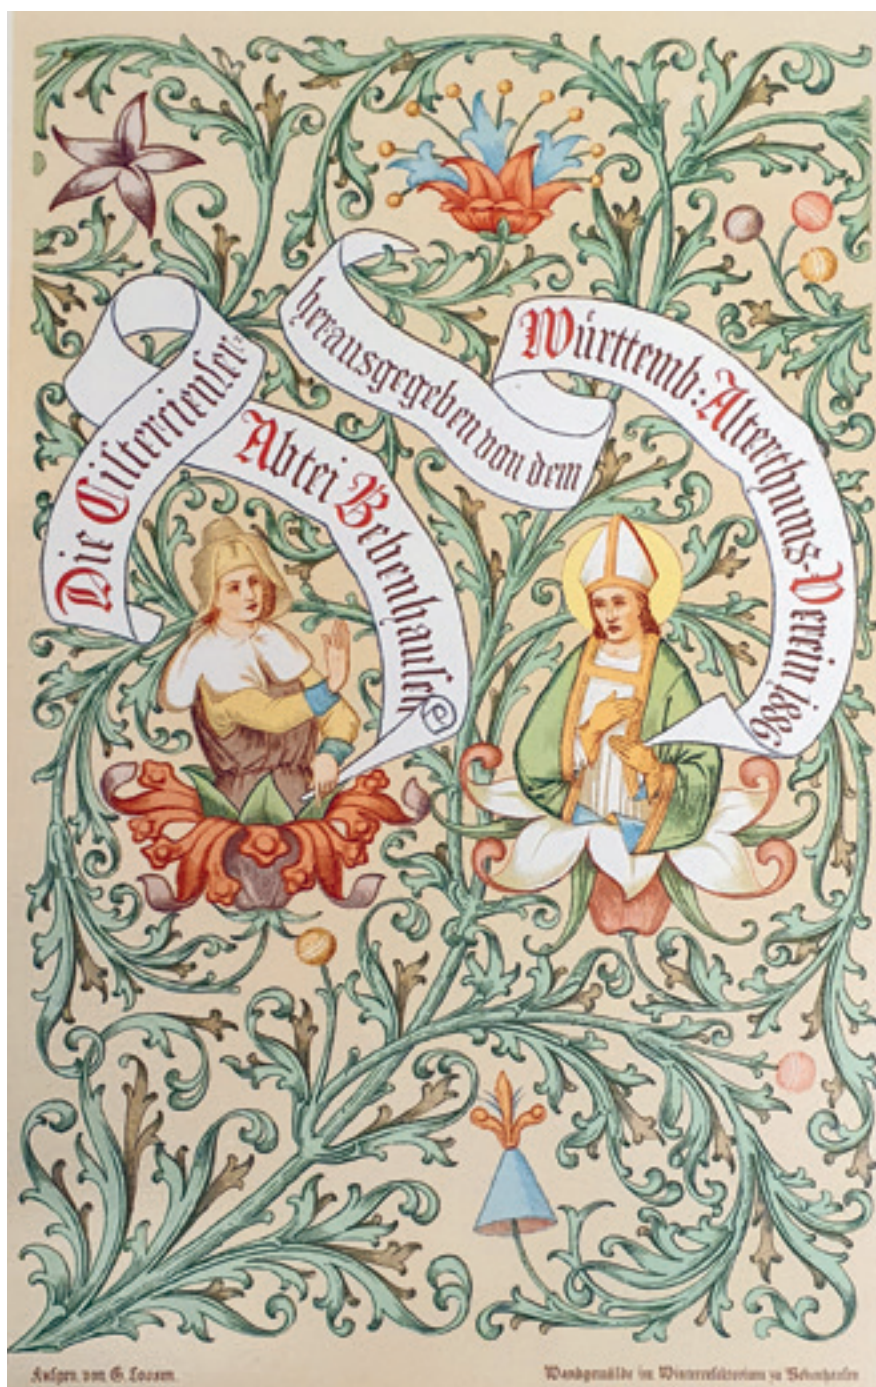 Die Ciſtercienſer=
Abtei Bebenhauſen
herausgegeben von dem
Württemb: Alterthums-Verein 1886
Aufgen. von G. Loosen.
Wandgemälde im Winterrefektorium zu Bebenhauſen